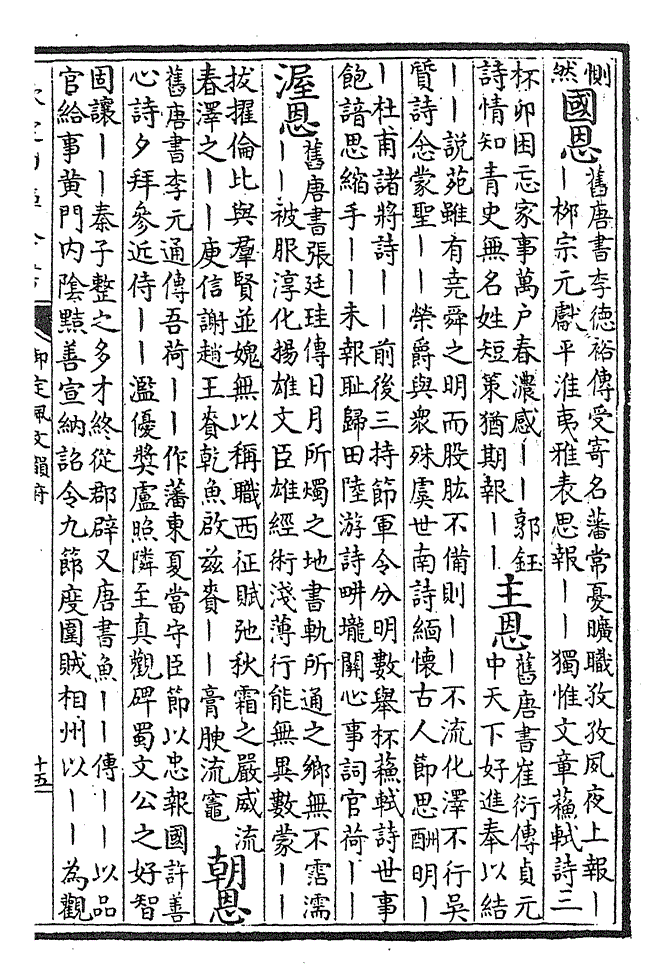 惻
然
國恩
舊唐書李德裕傳受寄名藩常憂曠職孜孜夙夜上報丨
丨柳宗元獻平淮夷雅表思報丨丨獨惟文章蘇軾詩三
杯卯困忘家事萬户春濃感丨丨郭鈺
詩情知青史無名姓短策猶期報丨丨
主恩
舊唐書崔衍傳貞元
中天下好進奉以結
丨丨說苑雖有堯舜之明而股肱不備則丨丨不流化澤不行吳
質詩念蒙聖丨丨榮爵與衆殊虞世南詩緬懷古人節思酬明丨
丨杜甫諸將詩丨丨前後三持節軍令分明數舉杯蘇軾詩世事
飽諳思縮手丨丨未報耻歸田陸游詩畊壠關心事詞官荷丨丨
渥恩
舊唐書張廷珪傳日月所燭之地書軌所通之鄉無不霑濡
丨丨被服淳化揚雄文臣雄經術淺薄行能無異數蒙丨丨
拔擢倫比與羣賢並媿無以稱職西征賦弛秋霜之嚴威流
春澤之丨丨庾信謝趙王賚乾魚啟兹賚丨丨膏腴流竈
朝恩
舊唐書李元通傳吾荷丨丨作藩東夏當守臣節以忠報國許善
心詩夕拜參近侍丨丨濫優奬盧照隣至真觀碑蜀文公之好智
固讓丨丨秦子整之多才終從郡辟又唐書魚丨丨傳丨丨以品
官給事黃門内陰黠善宣納詔令九節度圍賊相州以丨丨為觀
欽定四庫全書
御定佩文韻府
十五